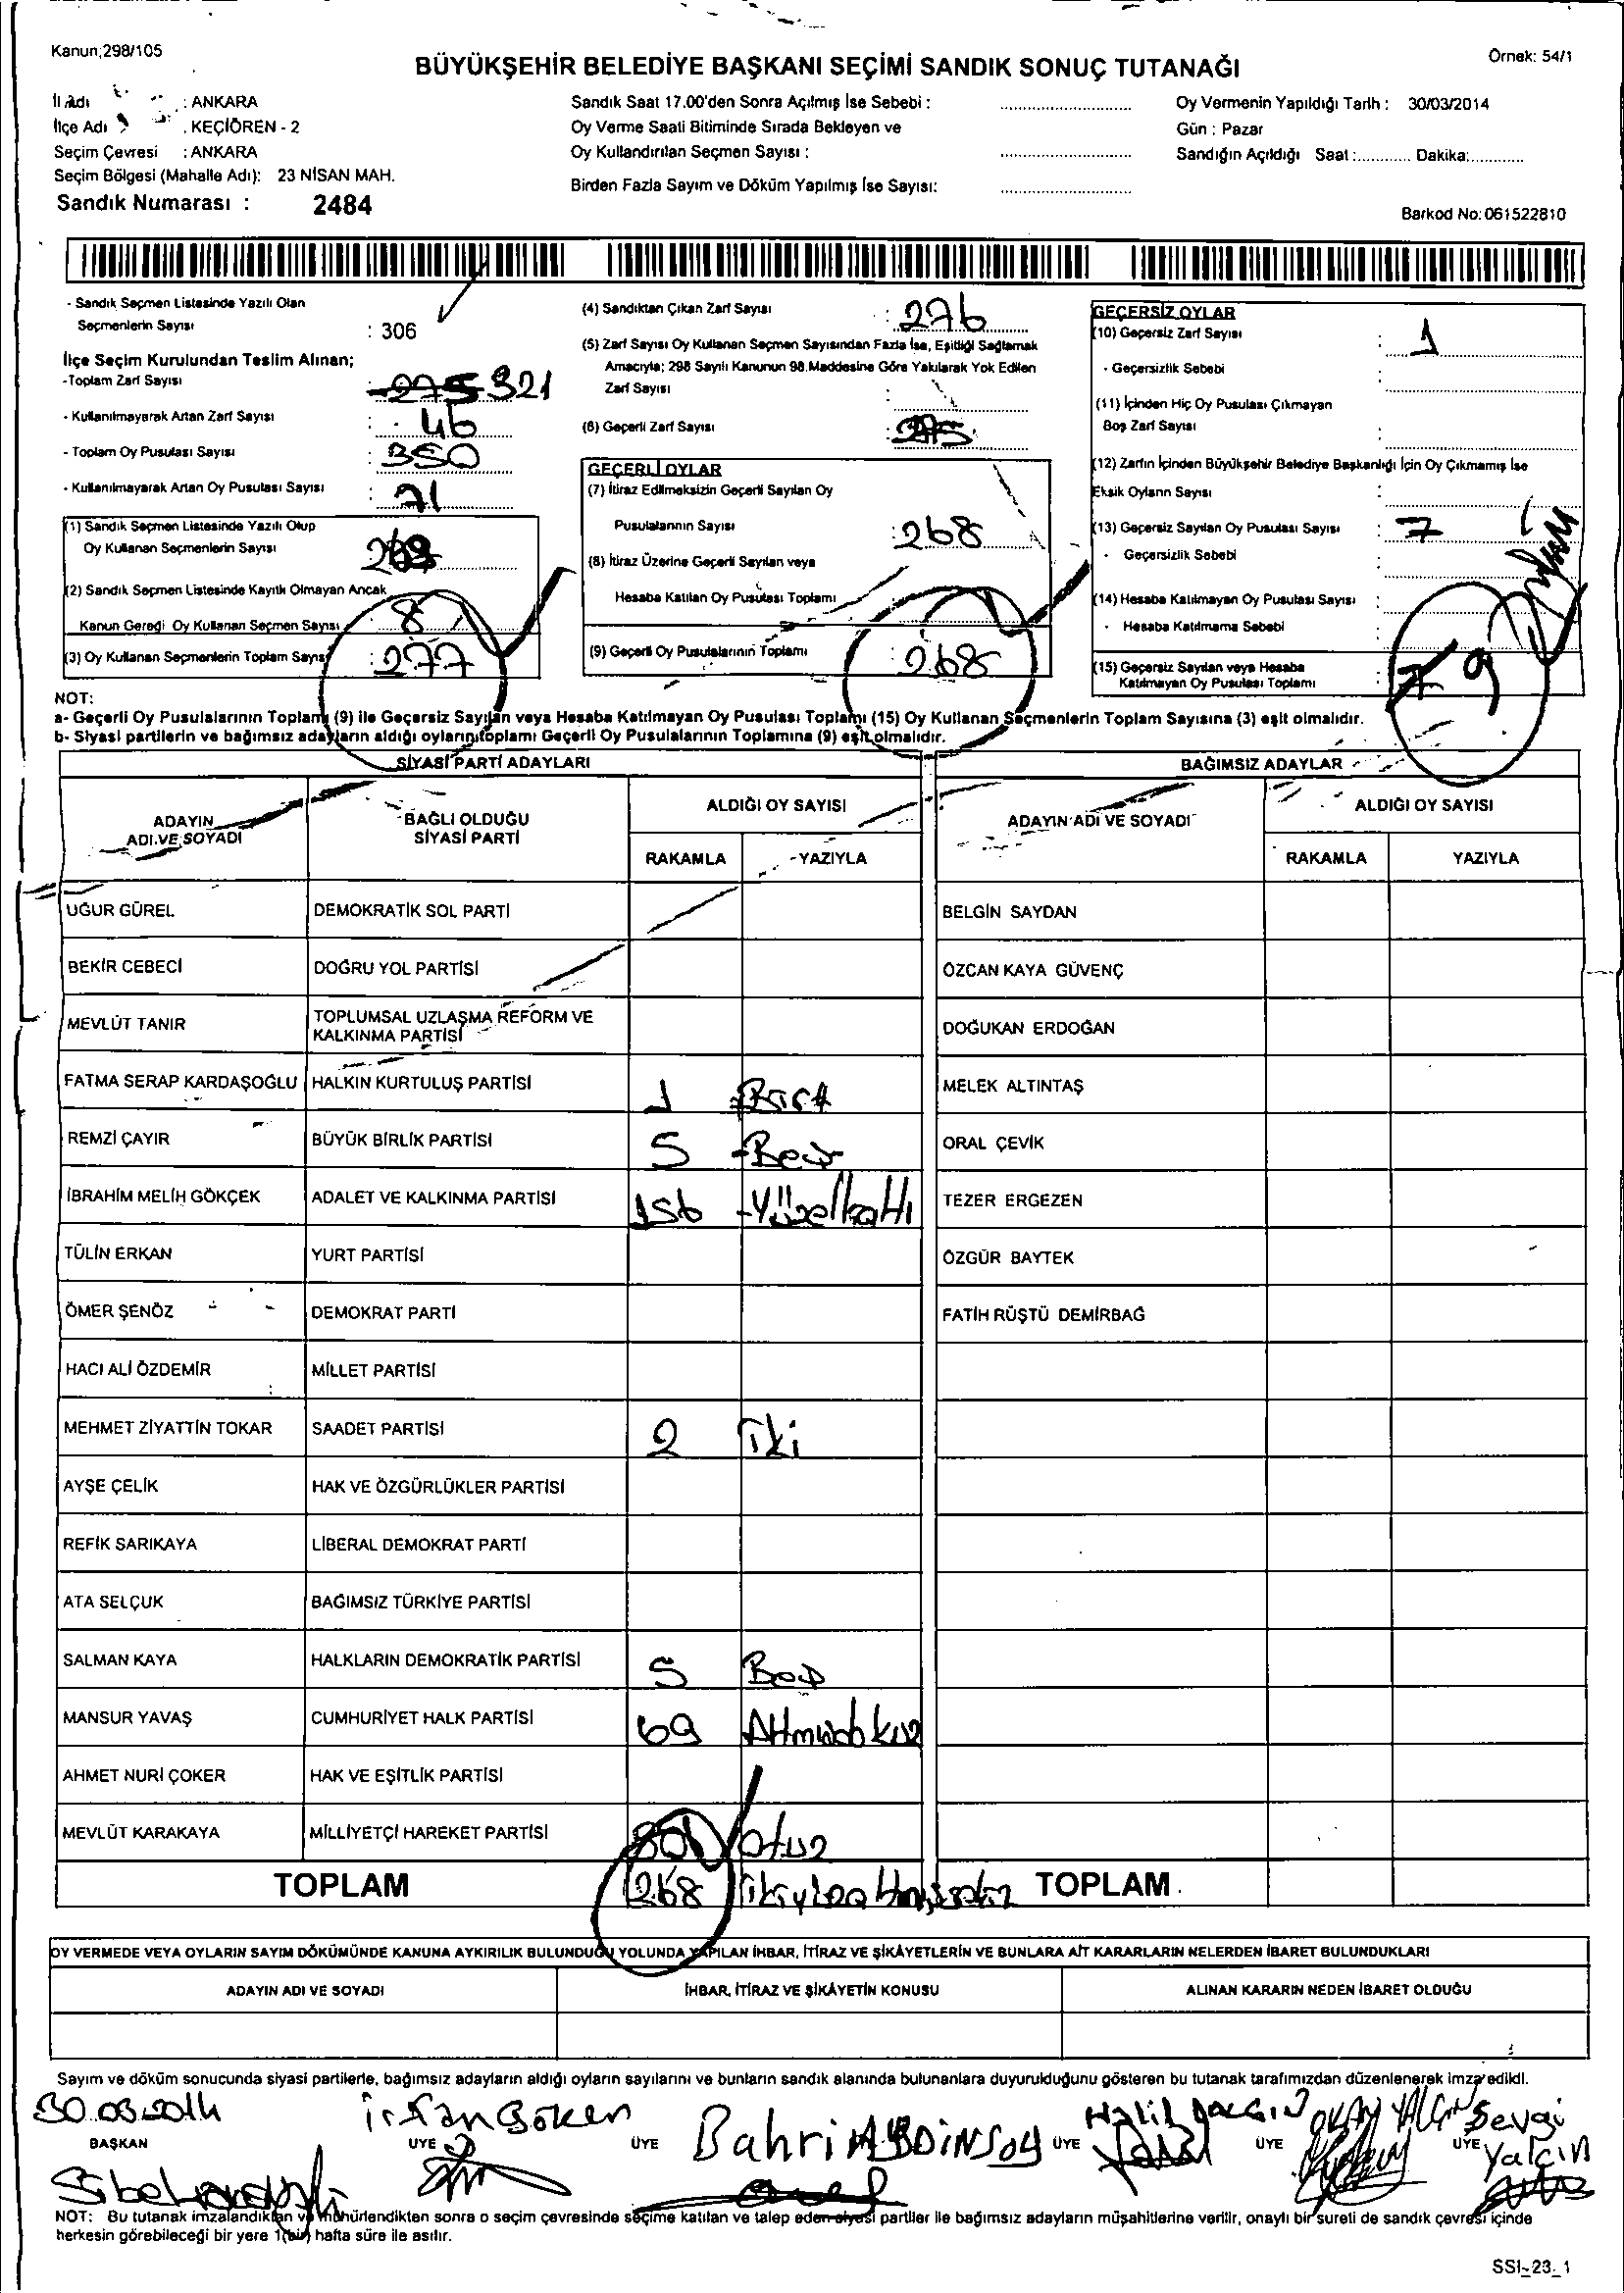 Kanun;298/105
BÜYÜKŞEHİR BELEDİYE BAŞKANI SEÇİMİ SANDIK SONUÇ TUTANAĞI
Örnek: 54/1
İl Adı : ANKARA
İlçe Adı : KEÇİÖREN - 2
Seçim Çevresi : ANKARA
Seçim Bölgesi (Mahalle Adı): 23 NİSAN MAH.
Sandık Numarası : 2484
Sandık Saat 17.00'den Sonra Açılmış İse Sebebi :
Oy Verme Saati Bitiminde Sırada Bekleyen ve
Oy Kullandırılan Seçmen Sayısı :
Birden Fazla Sayım ve Döküm Yapılmış İse Sayısı:
Oy Vermenin Yapıldığı Tarih : 30/03/2014
Gün : Pazar
Sandığın Açıldığı Saat :............ Dakika:............
Barkod No: 061522810
- Sandık Seçmen Listesinde Yazılı Olan
Seçmenlerin Sayısı : 306
İlçe Seçim Kurulundan Teslim Alınan;
-Toplam Zarf Sayısı : 275 321
- Kullanılmayarak Artan Zarf Sayısı : 46
- Toplam Oy Pusulası Sayısı : 350
- Kullanılmayarak Artan Oy Pusulası Sayısı : 71
(1) Sandık Seçmen Listesinde Yazılı Olup
Oy Kullanan Seçmenlerin Sayısı
(2) Sandık Seçmen Listesinde Kayıtlı Olmayan Ancak
Kanun Gereği Oy Kullanan Seçmen Sayısı 8
(3) Oy Kullanan Seçmenlerin Toplam Sayısı : 277
(4) Sandıktan Çıkan Zarf Sayısı : 276
(5) Zarf Sayısı Oy Kullanan Seçmen Sayısından Fazla İse, Eşitliği Sağlamak
Amacıyla; 298 Sayılı Kanunun 98.Maddesine Göre Yakılarak Yok Edilen
Zarf Sayısı :
(6) Geçerli Zarf Sayısı : 275
GEÇERLİ OYLAR
(7) İtiraz Edilmeksizin Geçerli Sayılan Oy
Pusulalarının Sayısı : 268
(8) İtiraz Üzerine Geçerli Sayılan veya
Hesaba Katılan Oy Pusulası Toplamı
(9) Geçerli Oy Pusulalarının Toplamı : 268
GEÇERSİZ OYLAR
(10) Geçersiz Zarf Sayısı : 1
- Geçersizlik Sebebi :
(11) İçinden Hiç Oy Pusulası Çıkmayan
Boş Zarf Sayısı :
(12) Zarfın İçinden Büyükşehir Belediye Başkanlığı İçin Oy Çıkmamış İse
Eksik Oyların Sayısı :
(13) Geçersiz Sayılan Oy Pusulası Sayısı : 7
- Geçersizlik Sebebi :
(14) Hesaba Katılmayan Oy Pusulası Sayısı :
- Hesaba Katılmama Sebebi :
(15) Geçersiz Sayılan veya Hesaba
Katılmayan Oy Pusulası Toplamı : 7 9
NOT:
a- Geçerli Oy Pusulalarının Toplamı (9) ile Geçersiz Sayılan veya Hesaba Katılmayan Oy Pusulası Toplamı (15) Oy Kullanan Seçmenlerin Toplam Sayısına (3) eşit olmalıdır.
b- Siyasi partilerin ve bağımsız adayların aldığı oyların toplamı Geçerli Oy Pusulalarının Toplamına (9) eşit olmalıdır.
SİYASİ PARTİ ADAYLARI
BAĞIMSIZ ADAYLAR
ADAYIN ADI VE SOYADI
BAĞLI OLDUĞU SİYASİ PARTİ
ALDIĞI OY SAYISI
RAKAMLA YAZIYLA
ADAYIN ADI VE SOYADI
ALDIĞI OY SAYISI
RAKAMLA YAZIYLA
UĞUR GÜREL DEMOKRATİK SOL PARTİ BELGİN SAYDAN
BEKİR CEBECİ DOĞRU YOL PARTİSİ ÖZCAN KAYA GÜVENÇ
MEVLÜT TANIR TOPLUMSAL UZLAŞMA REFORM VE KALKINMA PARTİSİ DOĞUKAN ERDOĞAN
FATMA SERAP KARDAŞOĞLU HALKIN KURTULUŞ PARTİSİ 1 MELEK ALTINTAŞ
REMZİ ÇAYIR BÜYÜK BİRLİK PARTİSİ 5 Beş ORAL ÇEVİK
İBRAHİM MELİH GÖKÇEK ADALET VE KALKINMA PARTİSİ 156 Yüzellialtı TEZER ERGEZEN
TÜLİN ERKAN YURT PARTİSİ ÖZGÜR BAYTEK
ÖMER ŞENÖZ DEMOKRAT PARTİ FATİH RÜŞTÜ DEMİRBAĞ
HACI ALİ ÖZDEMİR MİLLET PARTİSİ
MEHMET ZİYATTİN TOKAR SAADET PARTİSİ 2 İki
AYŞE ÇELİK HAK VE ÖZGÜRLÜKLER PARTİSİ
REFİK SARIKAYA LİBERAL DEMOKRAT PARTİ
ATA SELÇUK BAĞIMSIZ TÜRKİYE PARTİSİ
SALMAN KAYA HALKLARIN DEMOKRATİK PARTİSİ 5 Beş
MANSUR YAVAŞ CUMHURİYET HALK PARTİSİ 69 Altmışdokuz
AHMET NURİ ÇOKER HAK VE EŞİTLİK PARTİSİ
MEVLÜT KARAKAYA MİLLİYETÇİ HAREKET PARTİSİ 30 Otuz
TOPLAM 268 İkiyüzaltmışsekiz TOPLAM
OY VERMEDE VEYA OYLARIN SAYIM DÖKÜMÜNDE KANUNA AYKIRILIK BULUNDUĞU YOLUNDA YAPILAN İHBAR, İTİRAZ VE ŞİKÂYETLERİN VE BUNLARA AİT KARARLARIN NELERDEN İBARET BULUNDUKLARI
ADAYIN ADI VE SOYADI İHBAR, İTİRAZ VE ŞİKÂYETİN KONUSU ALINAN KARARIN NEDEN İBARET OLDUĞU
Sayım ve döküm sonucunda siyasi partilerle, bağımsız adayların aldığı oyların sayılarını ve bunların sandık alanında bulunanlara duyurulduğunu gösteren bu tutanak tarafımızdan düzenlenerek imza edildi.
30.03.2014 İrfan Göken Bahri AYDINSOY Halil OKAY YALÇIN Sevgi Yalçın
BAŞKAN ÜYE ÜYE ÜYE ÜYE ÜYE
Sibel
NOT: Bu tutanak imzalandıktan ve mühürlendikten sonra o seçim çevresinde seçime katılan ve talep eden siyasi partiler ile bağımsız adayların müşahitlerine verilir, onaylı bir sureti de sandık çevresi içinde
herkesin görebileceği bir yere 1(bir) hafta süre ile asılır.
SSI-23_1